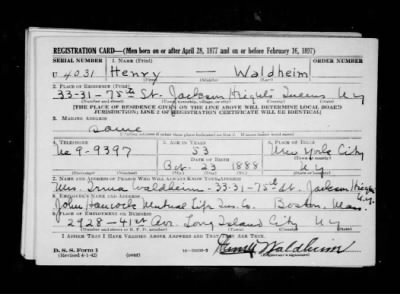 REGISTRATION CARD—(Men born on or after April 28, 1877 and on or before February 16, 1897)
SERIAL NUMBER 1. NAME (Print)
U 4031 Henry — Waldheim
(First) (Middle) (Last)
2. PLACE OF RESIDENCE (Print)
33-31-75th St. Jackson Heights Queens N.Y.
(Number and street) (Town, township, village, or city) (County) (State)
[THE PLACE OF RESIDENCE GIVEN ON THE LINE ABOVE WILL DETERMINE LOCAL BOARD
JURISDICTION; LINE 2 OF REGISTRATION CERTIFICATE WILL BE IDENTICAL]
3. MAILING ADDRESS
same
[Mailing address if other than place indicated on line 2. If same insert word same]
4. TELEPHONE 5. AGE IN YEARS 6. PLACE OF BIRTH
Ne 9-9397 53 New York City
DATE OF BIRTH
Oct. 23 1888 N.Y.
(Mo.) (Day) (Yr.)
7. NAME AND ADDRESS OF PERSON WHO WILL ALWAYS KNOW YOUR ADDRESS
Mrs. Irma Waldheim - 33-31-75th St. Jackson Heights N.Y.
8. EMPLOYER'S NAME AND ADDRESS
John Hancock Mutual Life Ins. Co. Boston, Mass.
9. PLACE OF EMPLOYMENT OR BUSINESS
2928-41st Av. Long Island City N.Y.
(Number and street or R. F. D. number) (Town) (County) (State)
I AFFIRM THAT I HAVE VERIFIED ABOVE ANSWERS AND THAT THEY ARE TRUE.
D. S. S. Form 1
(Revised 4-1-42) (over) Henry Waldheim